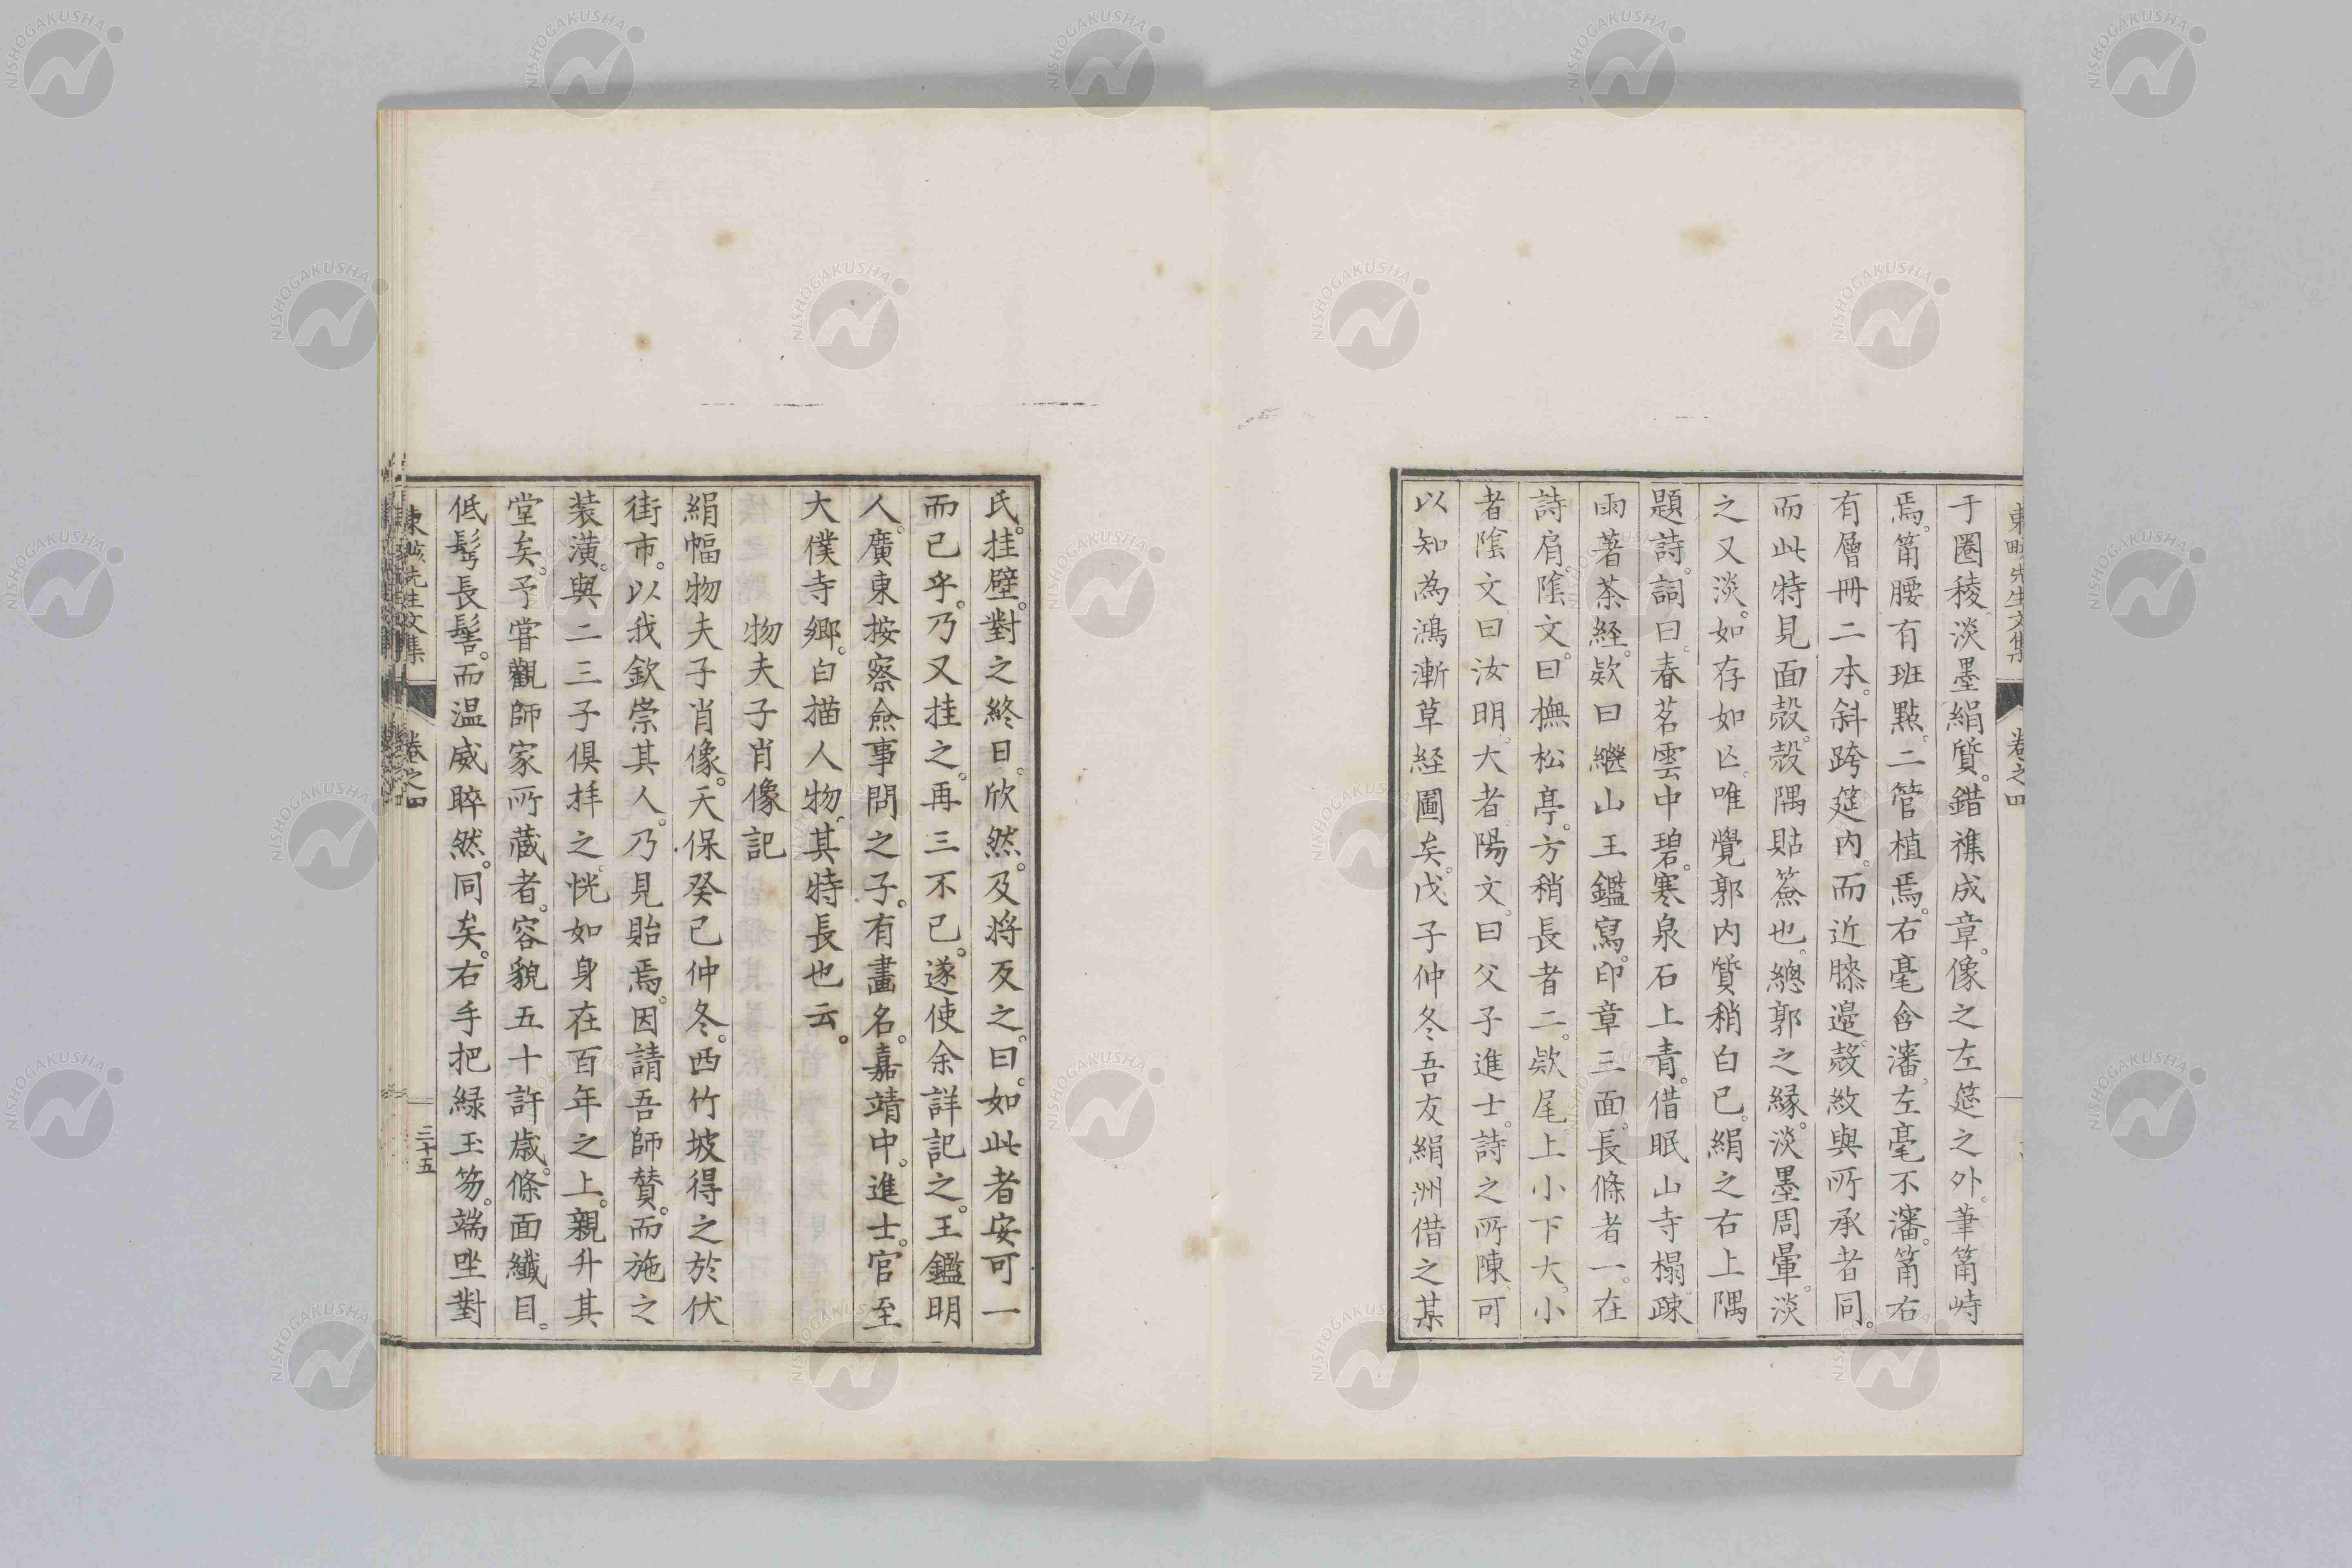 于圈稜淡墨絹質。錯襍成章。像之左筵之外。筆筩峙
焉。筩腰有班點。二管植焉。右毫含瀋。左毫不瀋。筩右
有層冊二本。斜跨筵内。而近膝邉。殼紋與所承者同。
而此特見面殼。殼隅貼簽也。總郭之縁。淡墨周暈。淡
之又淡。如存如亡。唯覺郭内質稍白已。絹之右上隅
題詩。詞曰。春茗雲中碧。寒泉石上青。借眠山寺榻。疎
雨著茶経。欵曰繼山王鑑寫。印章三面。長條者一。在
詩肩。陰文。曰撫松亭。方稍長者二。欵尾上小下大。小
者陰文。曰汝明。大者陽文。曰父子進士。詩之所陳。可
以知為鴻漸草経圖矣。戊子仲冬吾友絹洲借之某
氏。挂壁。對之終日。欣然。及将反之。曰。如此者安可一
而已乎。乃又挂之。再三不已。遂使余詳記之。王鑑明
人。廣東按察僉事問之子。有畫名。嘉靖中。進士。官至
大僕寺卿。白描人物。其特長也云。
物夫子肖像記
絹幅物夫子肖像。天保癸己仲冬。西竹坡得之於伏
街市。以我欽崇其人。乃見貽焉。因請吾師賛。而施之
装潢。與二三子倶拝之。恍如身在百年之上。親升其
堂矣。予嘗觀師家所藏者。容貌五十許歳。條面纖目。
低髩長髻。而温威睟然。同矣。右手把緑玉笏。端坐對
東畡先生文集 卷之四 三十五
東畡先生文集 卷之四
NISHOGAKUSHA